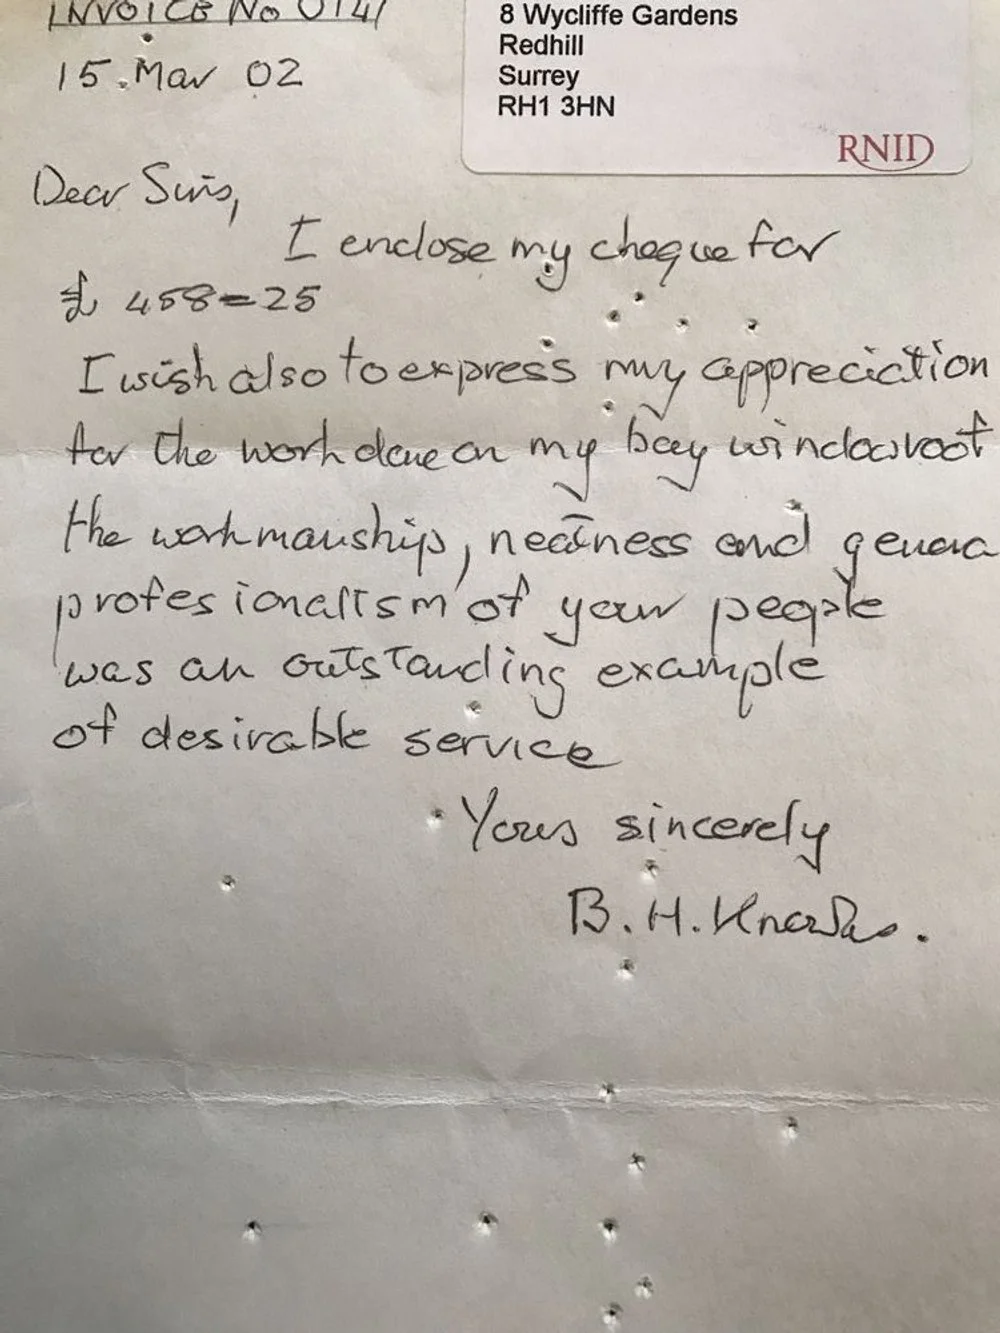 INVOICE No 0141
15. Mar 02
8 Wycliffe Gardens
Redhill
Surrey
RH1 3HN
RNID
Dear Sirs,
I enclose my cheque for
£ 458=25
I wish also to express my appreciation
for the work done on my bay window roof
the workmanship, neatness and genera
profesionalism of your people
was an outstanding example
of desirable service
Yours sincerely
B. H. Knowles.